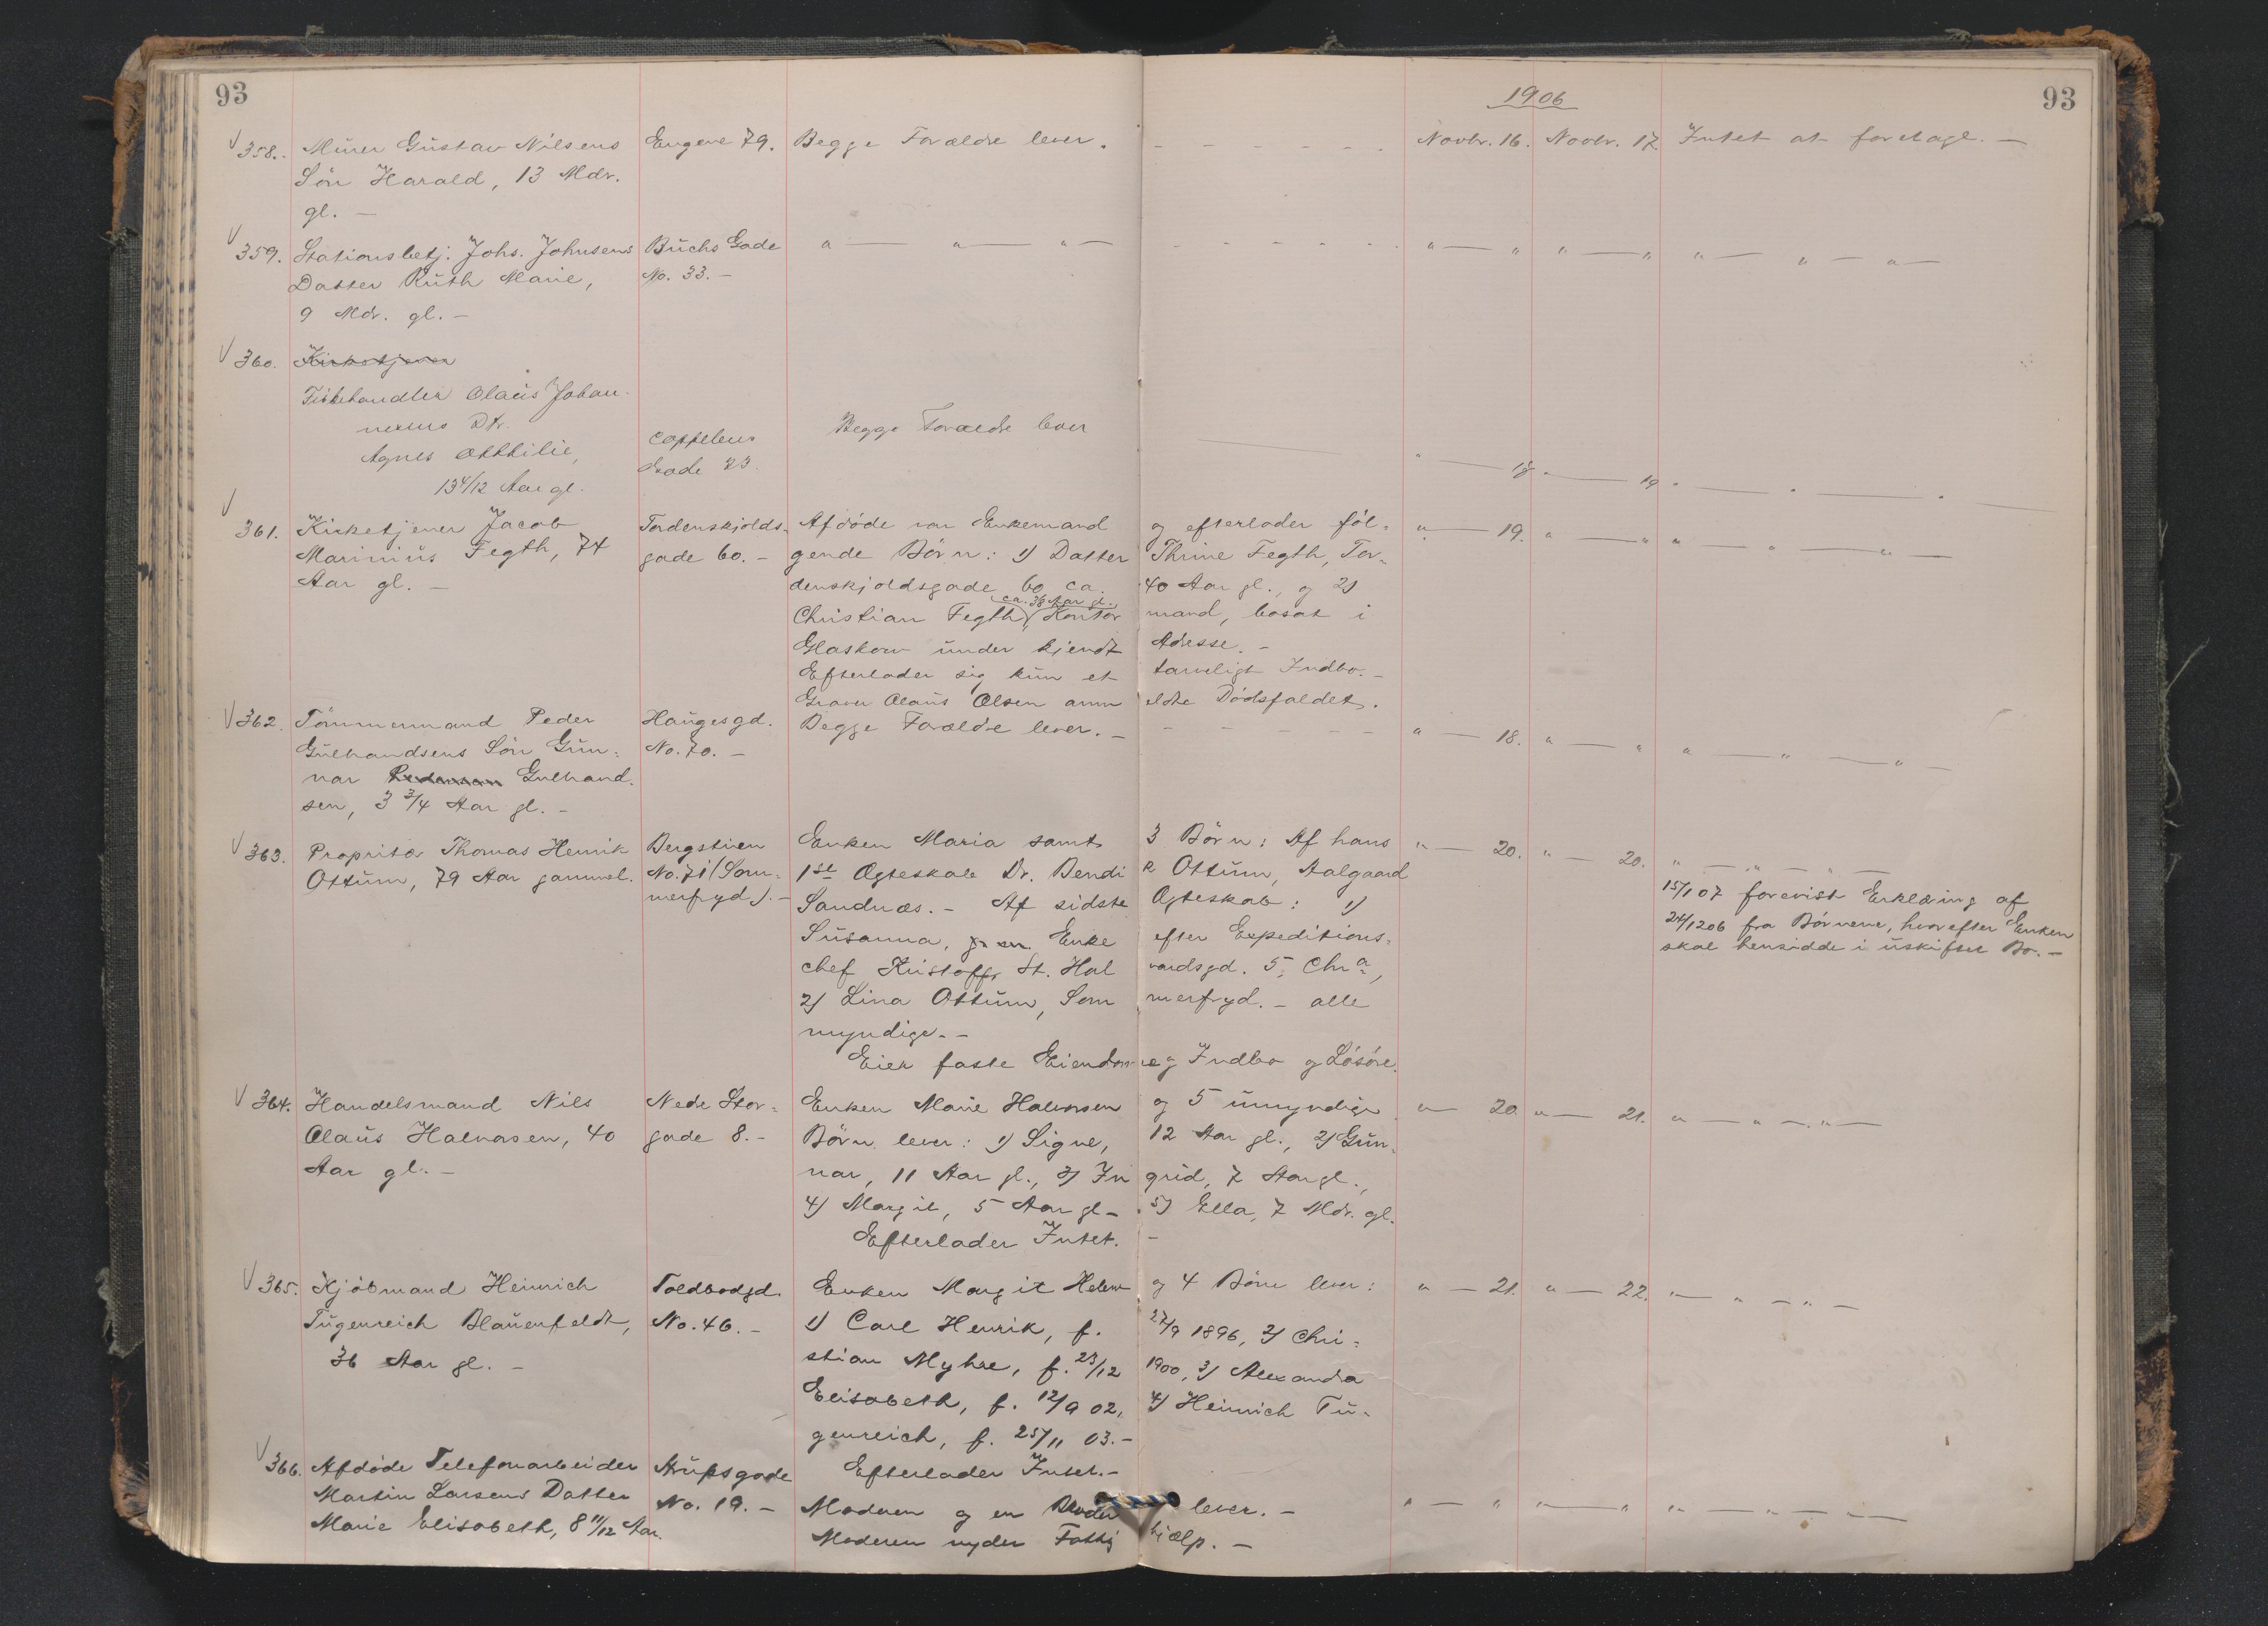 93
1906
93
358. Murer Gustav Nilsens Eugene 79. Begge Forældre lever. - - - - - - Novbr. 16. Novbr. 17. Intet at foretage. —
Sön Harald, 13 Mdr.
gl. —
359. Stationsbetj. Johs. Johnsens Buchs Gade " — " — " — - - - - - - " — " " — " " — " — " —
Datter Ruth Marie, No. 33. —
9 Mdr. gl. —
360. Kirketjener
Fiskehandler Olaus Johan-
nesens Dtr. Begge Forældre lever
Agnes Otthilie, Cappelens " — 18 " — 19 " — " — " —
13 4/12 Aar gl. Gade 23.
361. Kirketjener Jacob Tordenskjolds- Afdöde var Enkemand og efterlader föl- " — 19. " — " " — " — " —
Marinius Fegth, 74 gade 60. — gende Börn: 1) Datter Thrine Fegth, Tor-
Aar gl. — denskjoldsgade 60 ca. 40 Aar gl., og 2)
ca. 36 Aar gl.
Christian Fegth, Kontormand, bosat i
Glaskow under kjendt Adresse. —
Efterlader sig kun et tarveligt Indbo. —
Graver Olaus Olsen anmeldte Dödsfaldet.
362. Tömmermand Peder Haugesgd. Begge Forældre lever. — - - - - - " — 18. " — " " — " — " —
Gulhandsens Sön Gun- No. 70. —
nar Pedersen Gulhand-
sen, 3 3/4 Aar gl. —
363. Propritær Thomas Henrik Bergstien Enken Maria samt 3 Börn: Af hans " — 20. " — 20. " — " — " —
Ottum, 79 Aar gammel. No. 71 (Som- 1ste Ægteskab Dr. Bendik Ottum, Aalgaard
merfryd). — Sandnæs. — Af sidste Ægteskab: 1) 15/1 07 forevist Erklæring af
Susanna, Enke efter Expeditions- 24/12 06 fra Börnene, hvorefter Enken
chef Kristoffr, St. Halvardsgd. 5, Chra, skal hensidde i uskiftet Bo. —
2) Lina Ottum, Sommerfryd. — alle
myndige. —
Eier faste Eiendomme og Indbo og Lösöre.
364. Handelsmand Nils Nedre Stor- Enken Marie Halvorsen og 5 umyndige " — 20 " — 21. " — " — " —
Olaus Halvorsen, 40 gade 8. — Börn lever: 1) Signe, 12 Aar gl., 2) Gun-
Aar gl. — nar, 11 Aar gl., 3) Ingrid, 7 Aar gl.,
4) Margit, 5 Aar gl. — 5) Ella, 7 Mdr. gl.
Efterlader Intet. —
365. Kjöbmand Heinrich Toldbodgd. Enken Margit Helene og 4 Börn lever: " — 21. " — 22. " — " — " —
Tugenreich Blauenfeldt, No. 46. — 1) Carl Henrik, f. 27/9 1896, 2) Chri-
36 Aar gl. — stian Myhre, f. 23/12 1900, 3) Alexandra
Elisabeth, f. 12/9 02, 4) Heinrich Tu-
genreich, f. 25/11 03. —
366. Afdöde Telefonarbeider Arupsgade Efterlader Intet. —
Martin Larsens Datter No. 19. — Moderen og en Broder lever. — " — " " — " " — " — " —
Marie Elisabeth, 8 11/12 Aar. Moderen nyder Fattighjælp. —